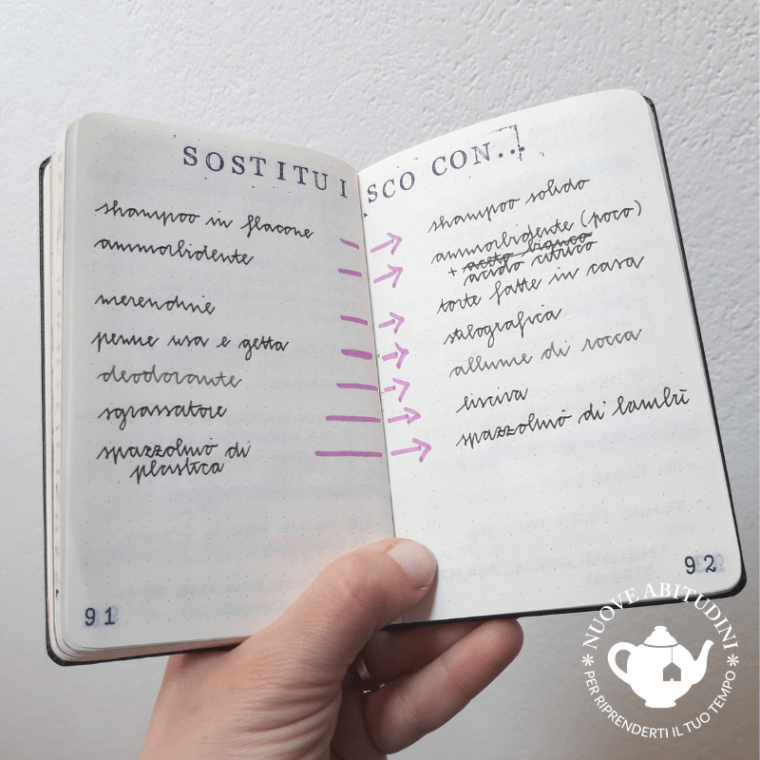 SOSTITUISCO CON...
shampoo in flacone
ammorbidente
merendine
penne usa e getta
deodorante
sgrassatore
spazzolino di
plastica
91
shampoo solido
ammorbidente (poco)
+ aceto bianco
acido citrico
torte fatte in casa
stilografica
allume di rocca
lisciva
spazzolino di bambù
92
NUOVE ABITUDINI
PER RIPRENDERTI IL TUO TEMPO